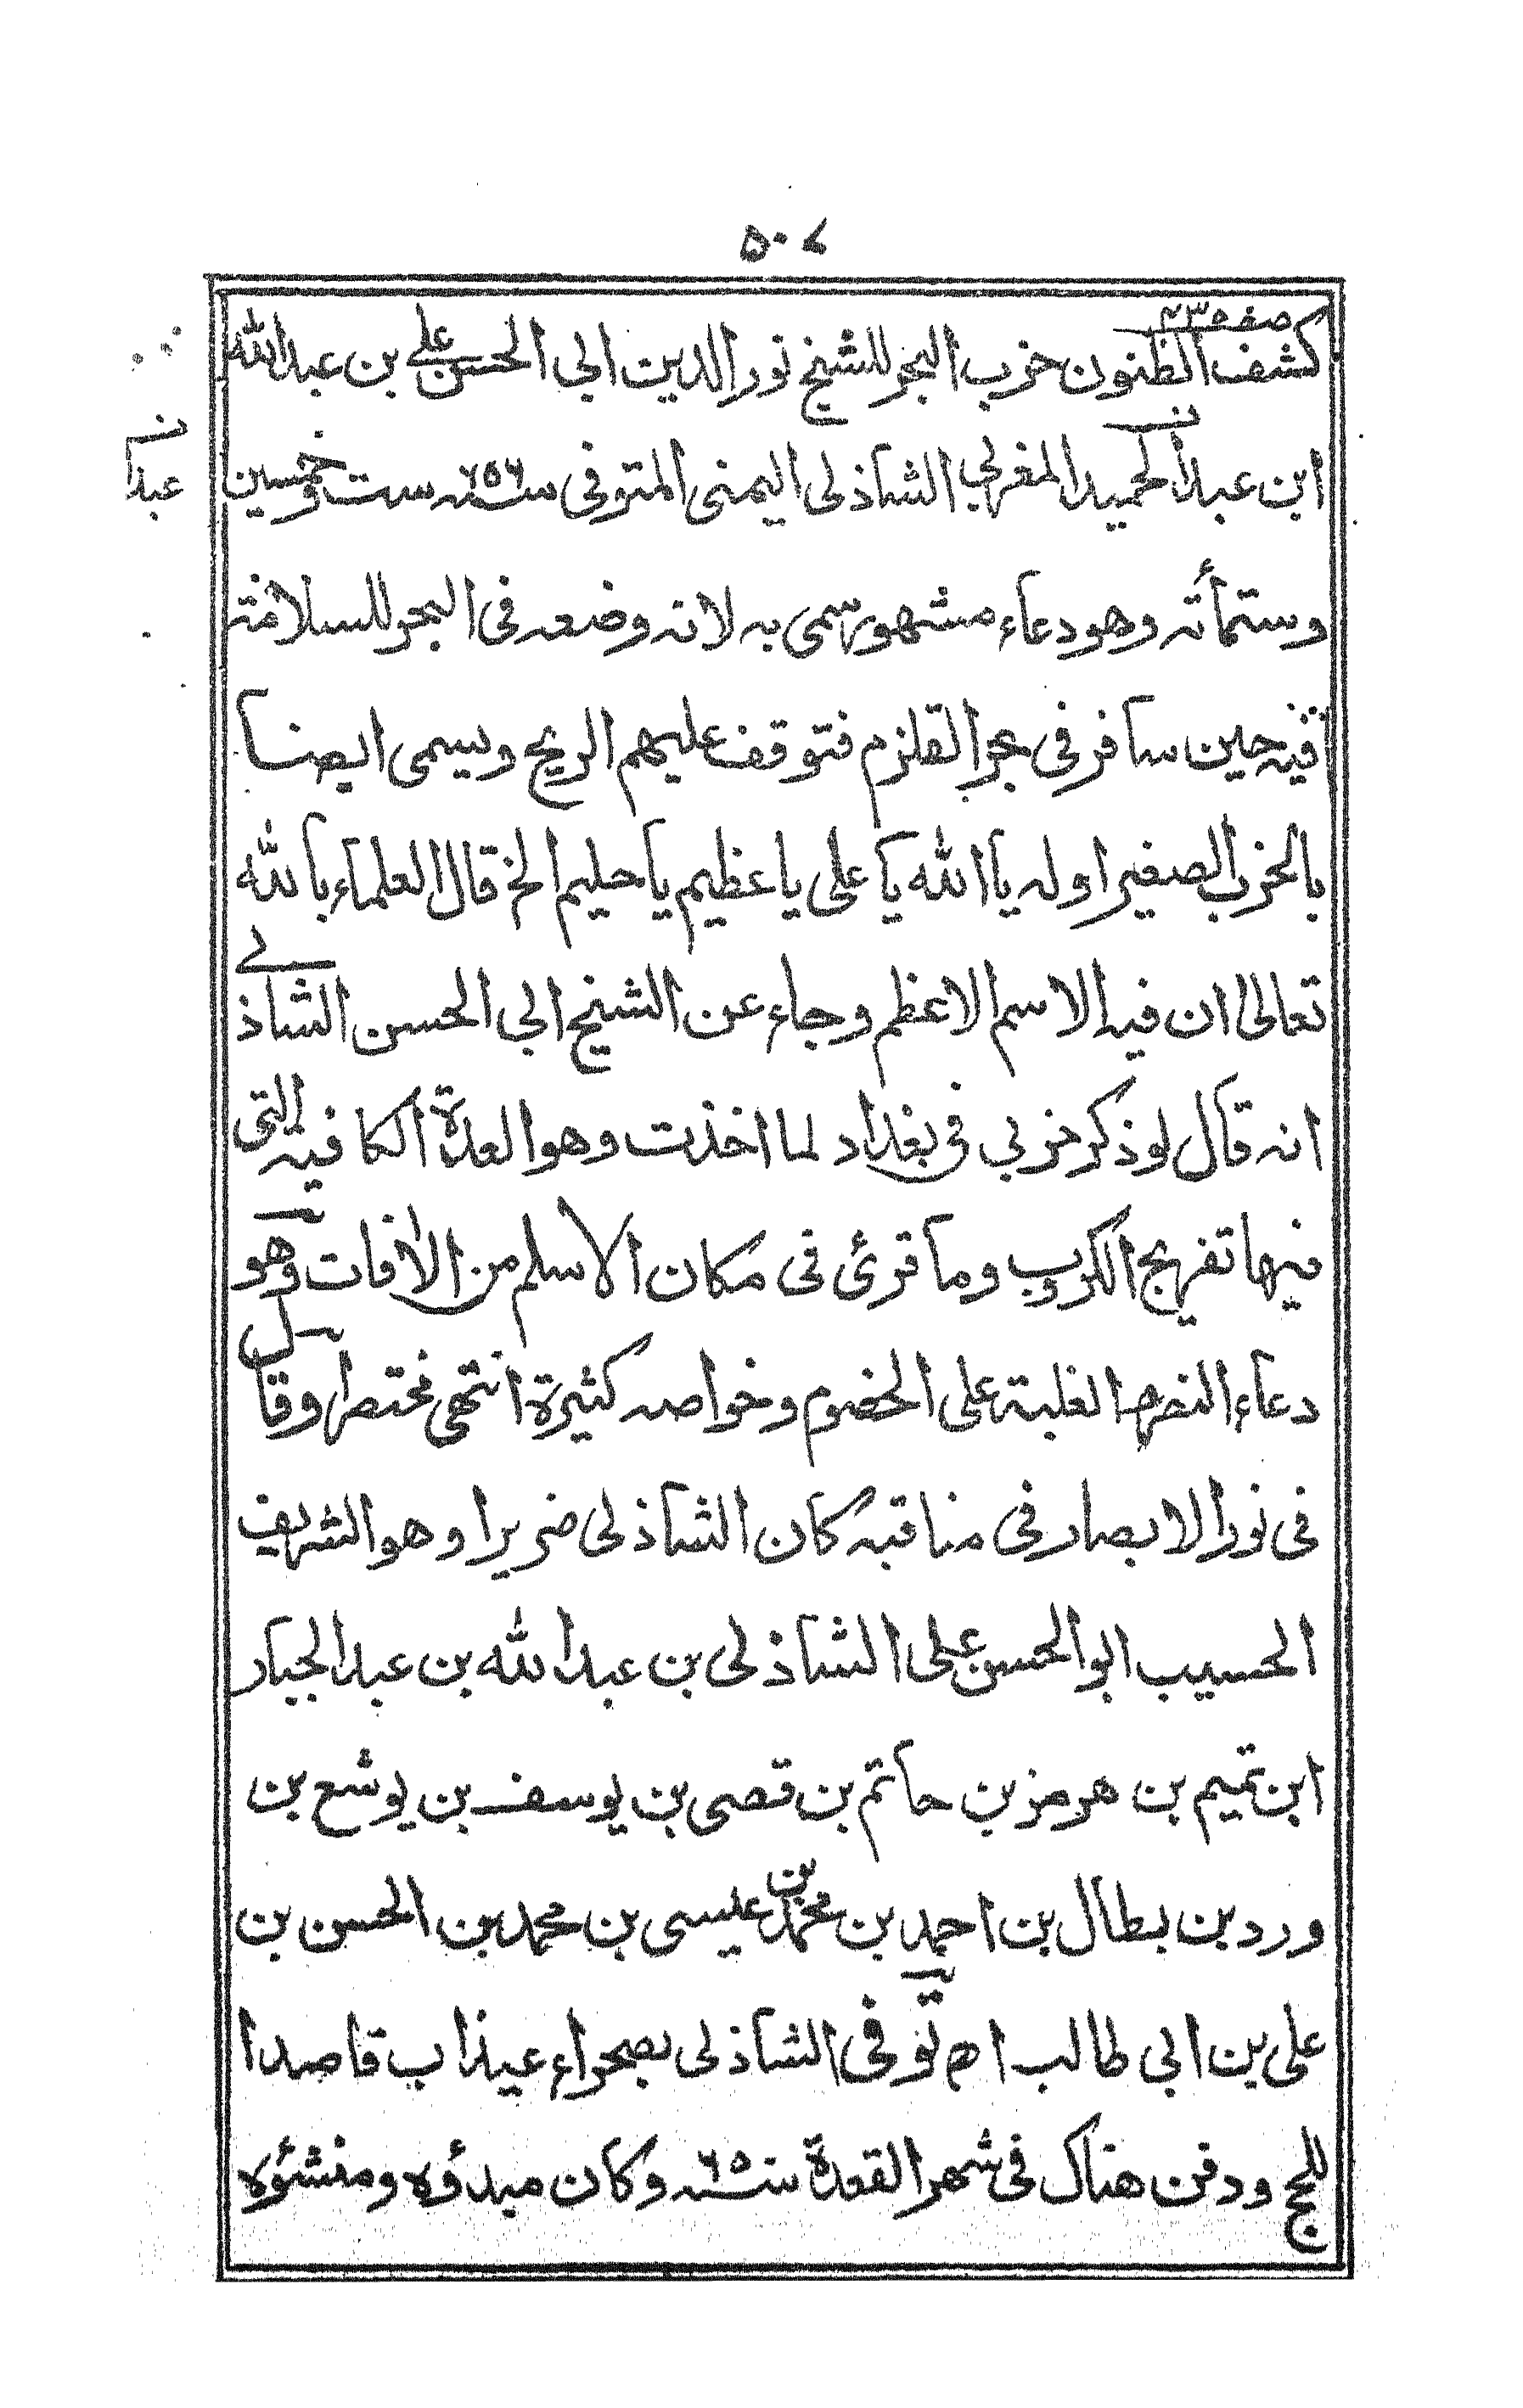 ٥٠٧
صفه ٤٣٥
كشف الظنون حزب البحر للشيخ نور الدين ابى الحسن على بن عبد الله
ابن عبد الحميد المغربى الشاذلى اليمنى المتوفى سنة ٦٥٦ ست وخمسين
ن عبد
وستمأته وهو دعاء مشهور سمى به لانه وضعه فى البحر للسلامة
فيه حين سافر فى بحر القلزم فتوقف عليهم الريح ويسمى ايضا
بالحزب الصغير اوله يا الله يا على يا عظيم يا حليم الخ قال العلماء بالله
تعالى ان فيه الاسم الاعظم وجاء عن الشيخ ابى الحسن الشاذلى
انه قال لو ذكر حزبى فى بغداد لما اخذت وهو العدة الكافية التى
فيها تفريج الكروب وما قرئ فى مكان الا سلم من الآفات وهو
دعاء النصر والغلبة على الخصوم وخواصه كثيرة انتهى مختصرا وقال
فى نور الابصار فى مناقبه كان الشاذلى ضريرا وهو الشريف
الحسيب ابو الحسن على الشاذلى بن عبد الله بن عبد الجبار
ابن تميم بن هرمز بن حاتم بن قصى بن يوسف بن يوشع بن
ورد بن بطال بن احمد بن محمد بن عيسى بن محمد بن الحسن بن
على بن ابى طالب اه توفى الشاذلى بصحراء عيذاب قاصدا
للحج ودفن هناك فى شهر القعدة سنة ٦٥ وكان مبدؤه ومنشؤه